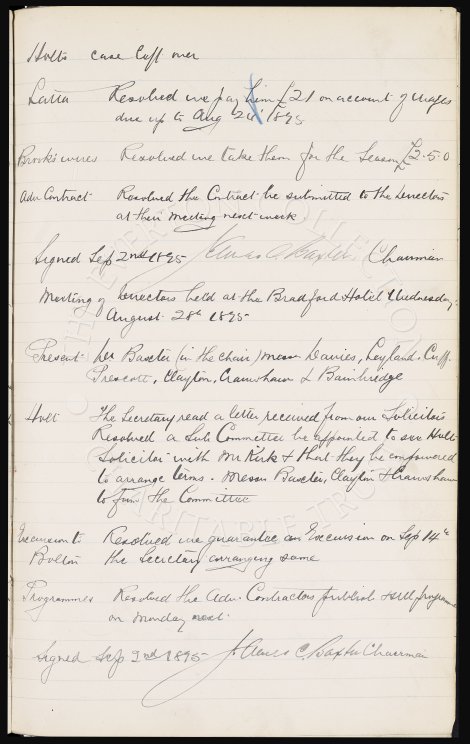 Holts case left over
Latta Resolved we pay him £21 on account of Wages
due up to Aug 24th 1895
Brooks wires Resolved we take them for the Season £2.5.0
Adv Contract Resolved the Contract be submitted to the Directors
at their meeting next week
Signed Sep 2nd 1895 James C Baxter Chairman
Meeting of Directors held at the Bradford Hotel Wednesday
August 28th 1895
Present Dr Baxter (in the chair) Messrs Davies, Leyland, Cuff
Prescott, Clayton, Crawshaw & Bainbridge
Holt The Secretary read a letter received from our Solicitors
Resolved a Sub Committee be appointed to see Holts
Solicitor with Mr Kirk & that they be empowered
to arrange terms. Messrs Baxter, Clayton & Crawshaw
to form the Committee
Excursion to Resolved we guarantee an Excursion on Sep 14th
Bolton the Secretary arranging same
Programmes Resolved the Adv. Contractors publish & sell programme
on Monday next.
Signed Sep 2nd 1895 James C. Baxter Chairman